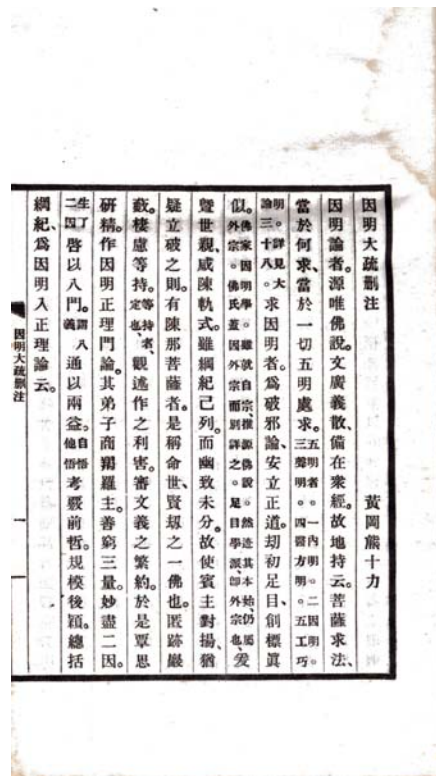 因明大疏刪注　　　　　　　　黃岡熊十力
因明論者。源唯佛說。文廣義散、備在衆經。故地持云。菩薩求法、
當於何求、當於一切五明處求。五明者。一內明。二因明。三聲明。四醫方明。五工巧
明。詳見大論三十八。求因明者。爲破邪論、安立正道。劫初足目、創標眞
似。佛家因明學。雖就自宗、推源佛說。然迹其本始、仍屬外宗。佛氏蓋因外宗而別詳之。足目學派、卽外宗也、爰
曁世親、咸陳軌式。雖綱紀已列。而幽致未分。故使賓主對揚、猶
疑立破之則。有陳那菩薩者。是稱命世、賢刼之一佛也。匿跡巖
藪。棲慮等持。等持者、定也、觀述作之利害。審文義之繁約。於是覃思
研精。作因明正理門論。其弟子商羯羅主。善窮三量。妙盡二因。
生了二因啓以八門。謂八義通以兩益。自悟他悟考覈前哲。規模後穎。總括
綱紀、爲因明入正理論云。
因明大疏刪注
一